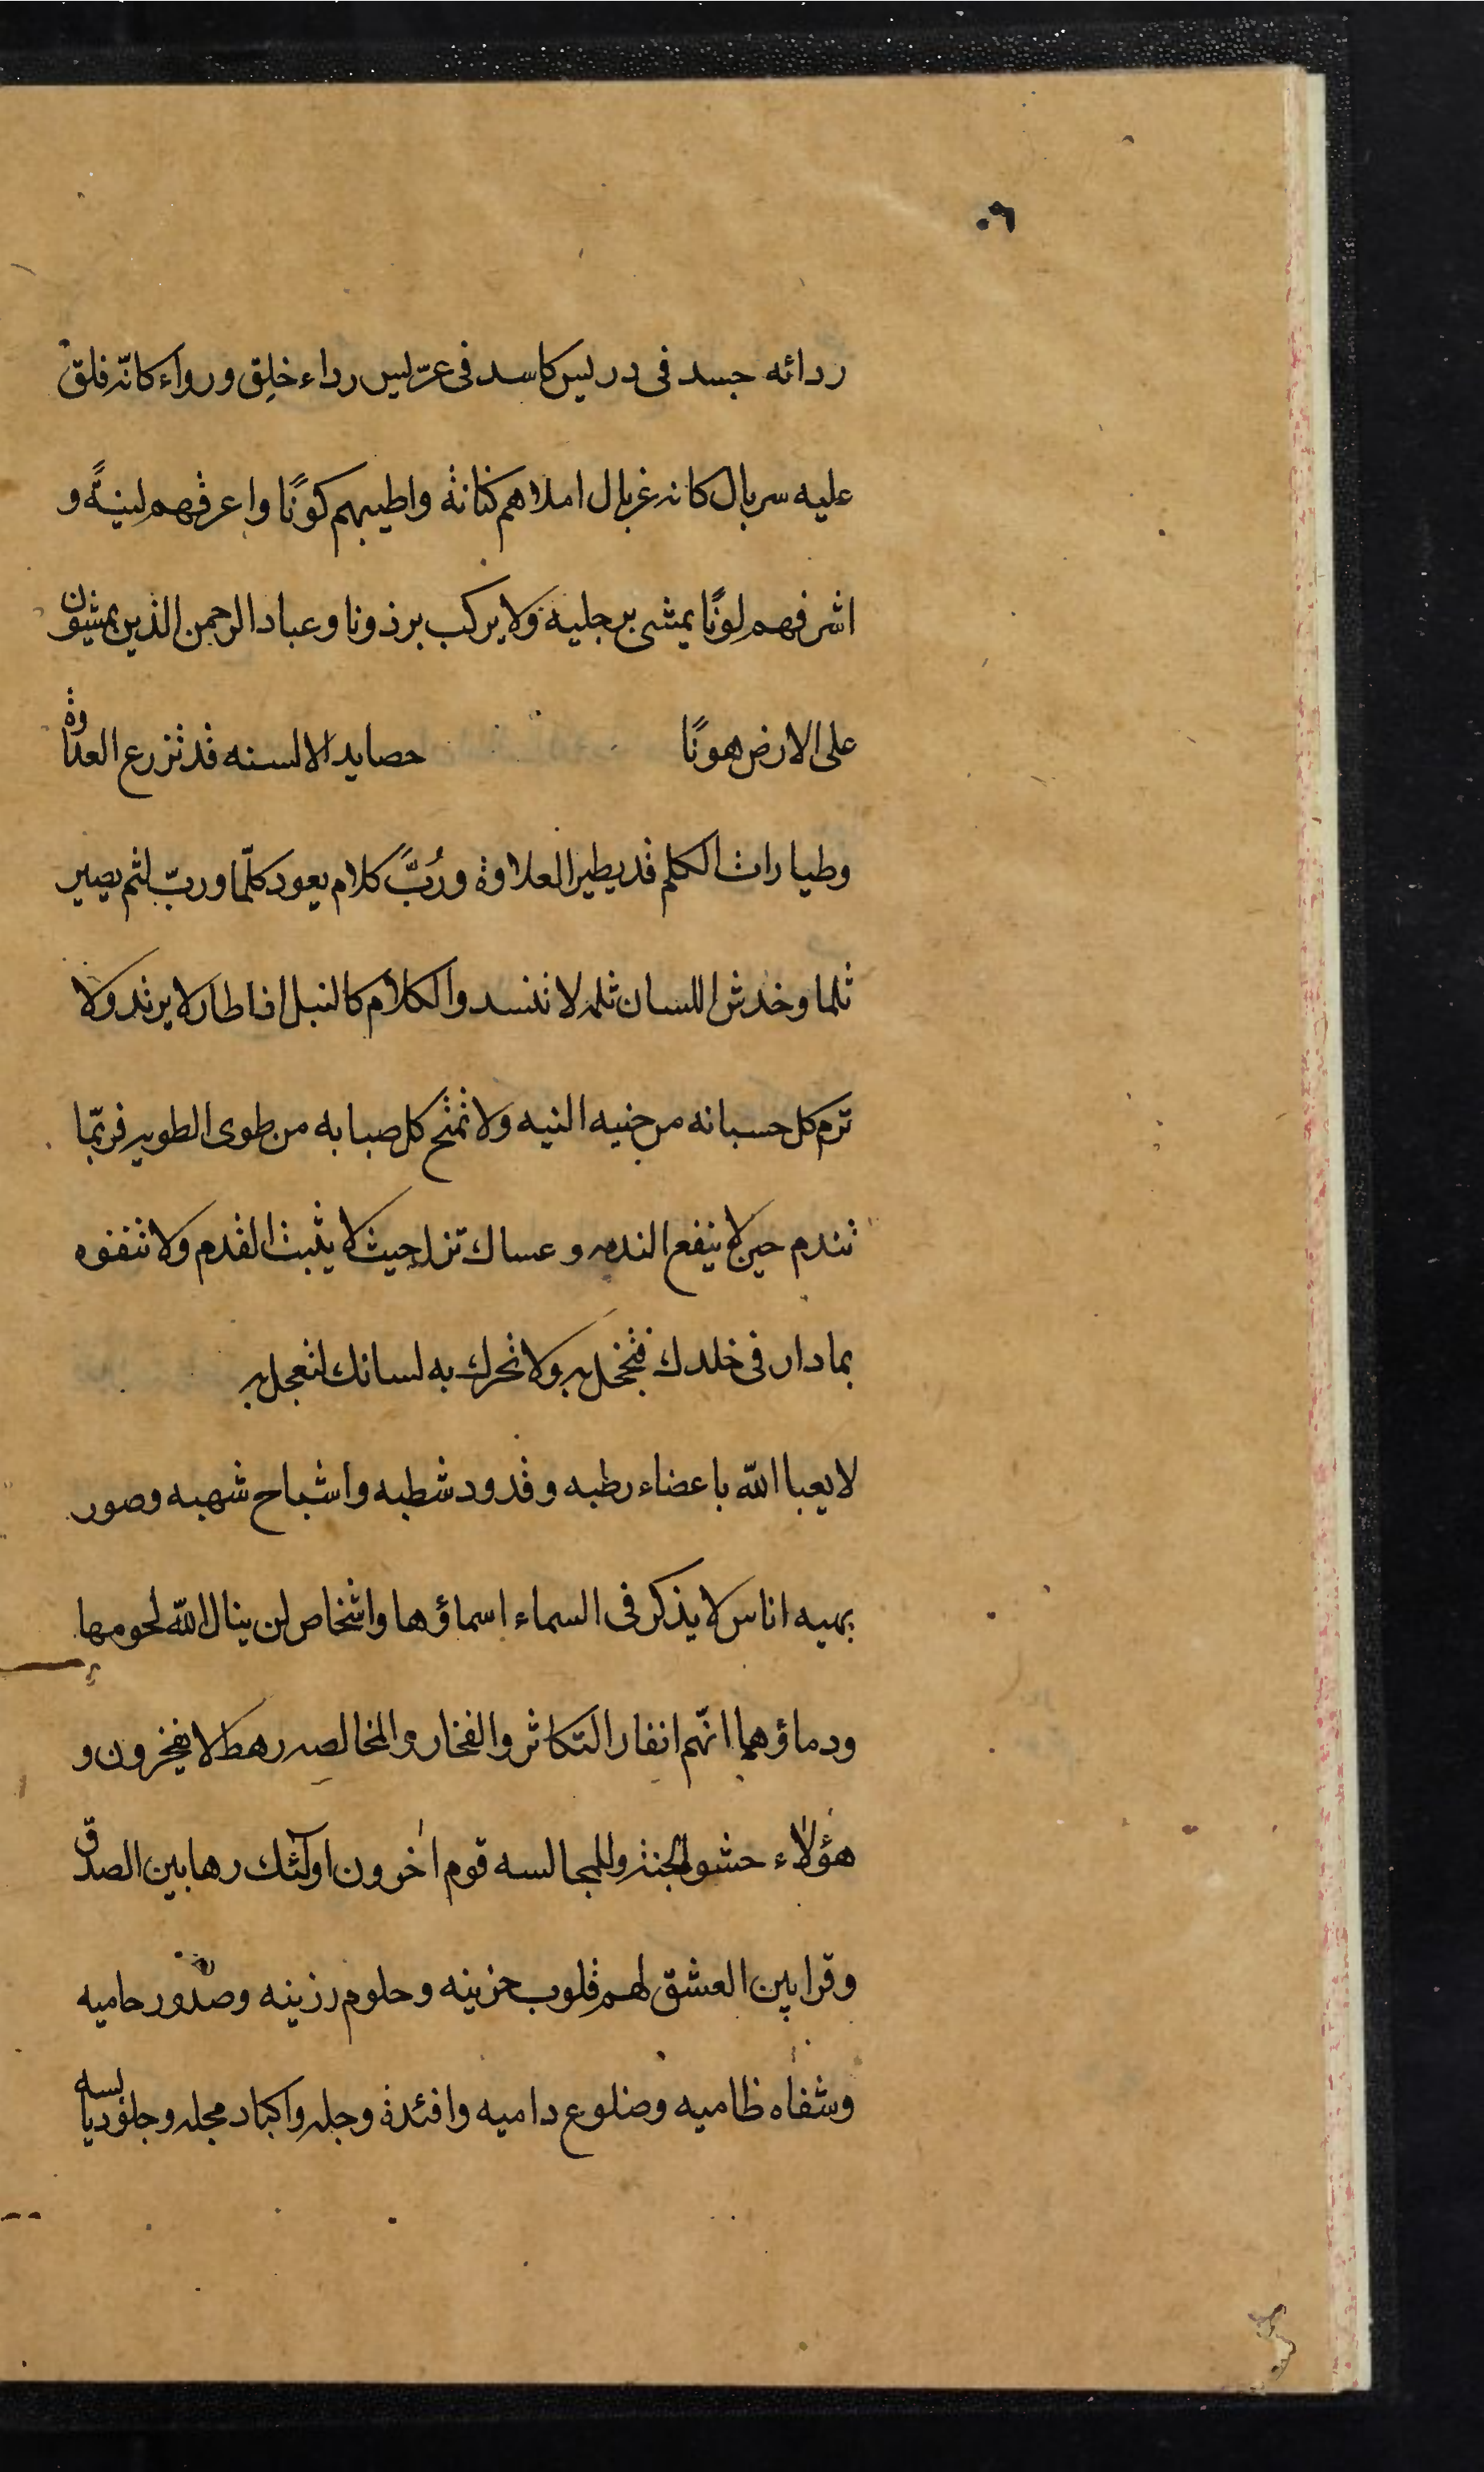 ٠٩
ردائه جسد فى دريس كاسد فى عرّيس رداء خلِق ورواء كانّه فلق
عليه سربال كانه غربال املاهم كنانة واطيبهم كونًا واعرفهم لينيةً و
اشرفهم لونًا يمشى برجليه ولا يركب برذونا وعباد الرحمن الذين يمشون
على الارض هونًا حصايد الالسنه قد تزرع العداوة
وطيارات الكلم قد يطير العلاوة ورُبَّ كلام يعود كلّما وربّ لثم يصير
ثلما وخدش اللسان ثلمه لا تنسد والكلام كالنبل اذا طار لا يرتد ولا
ترم كل حسبانه من حنيه النيه ولا تمتح كل صبابه من طوى الطويه فربّما
تندم حين لا ينفع الندم وعساك تزل حيث لا يثبت القدم ولا تتفوه
بما دار فى خلدك فتخجل به ولا تحرك به لسانك لتعجل به
لا يعبا الله باعضاء رطبه وقدود شطبه واشباح شهبه وصور
بهيه اناس لا يذكر فى السماء اسماؤها واشخاص لن ينال الله لحومها
ودماؤها انّهم انفار التكاثر والفخار والمخالصه رهط لا يفخرون و
هؤلاء حشو الجنة وللمجالسه قوم اخرون اولئك رهابين الصدق
وقرابين العشق لهم قلوب حزينه وحلوم رزينه وصدور حاميه
وشفاه ظاميه وضلوع داميه وافئدة وجله واكباد مجله وجلود يابسه